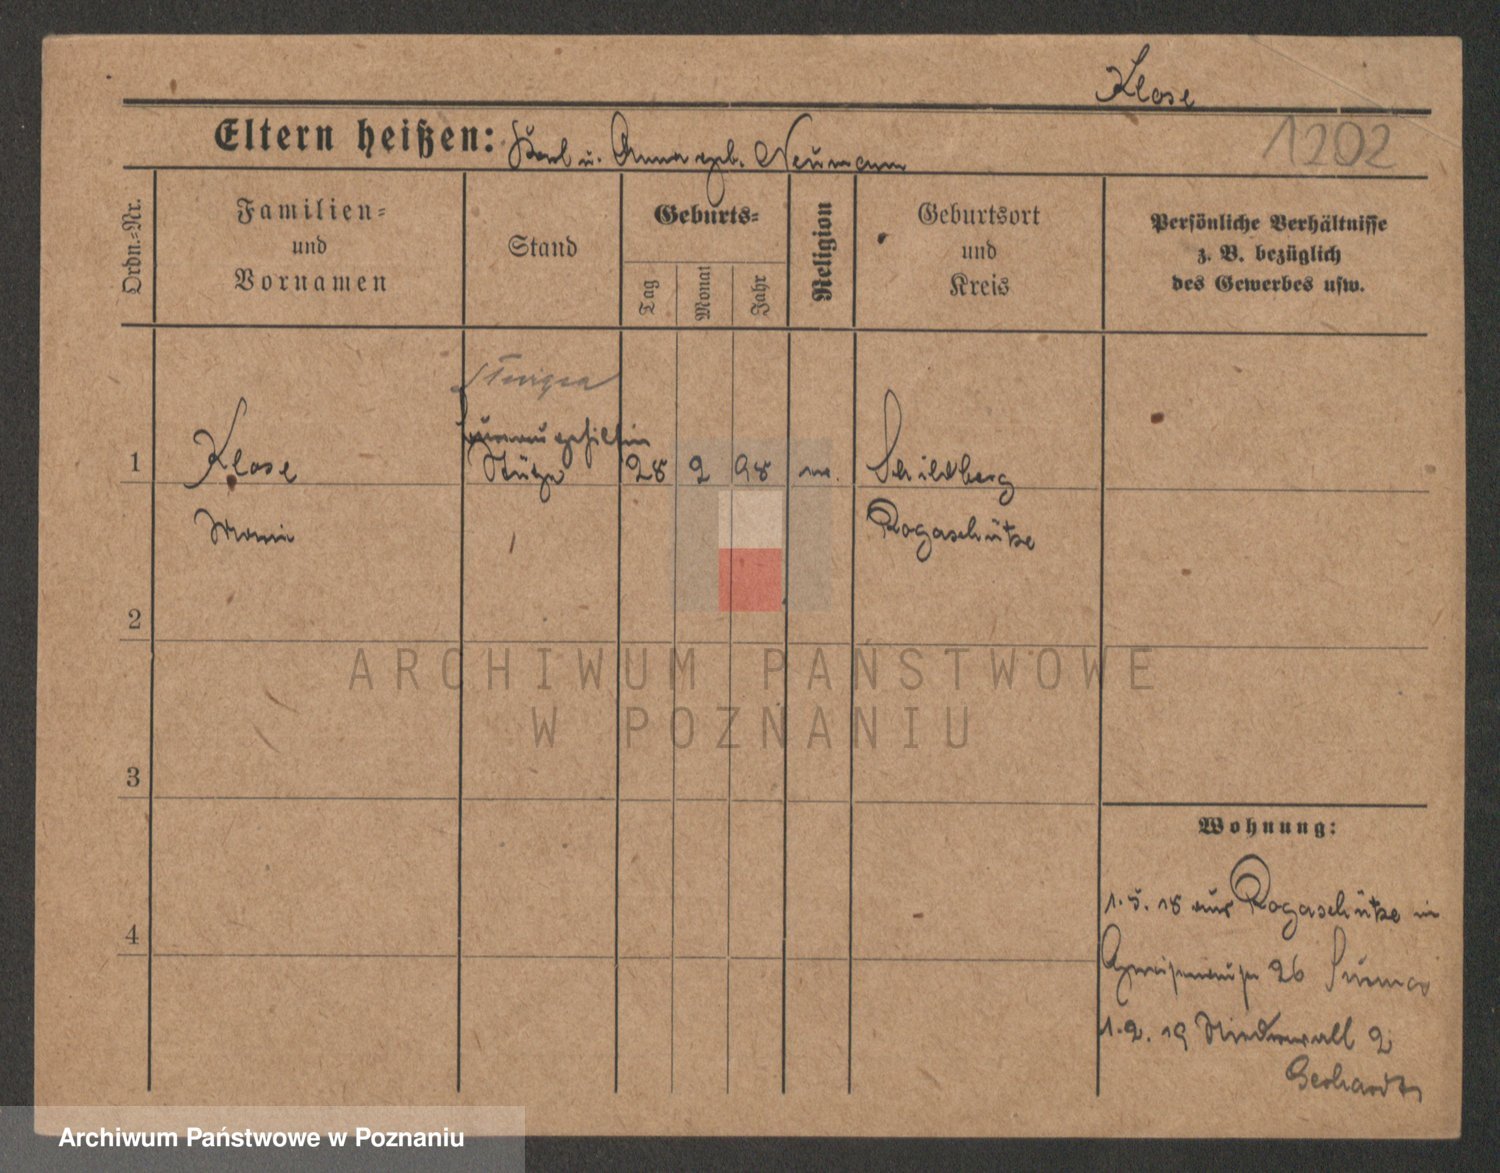 Klose
Eltern heißen: Karl u. Anna geb. Neumann
1202
Ordn.-Nr.
Familien-
und
Vornamen
Stand
Geburts-
Tag
Monat
Jahr
Religion
Geburtsort
und
Kreis
Persönliche Verhältnisse
z. B. bezüglich
des Gewerbes usw.
1
Klose
Stütze
28
2
98
Schildberg
Rogaschütze
2
3
4
Wohnung:
1.5.18 aus Rogaschütze in
26
1.2.19 Niederwall 2
Gerhardt
ARCHIWUM PAŃSTWOWE
W POZNANIU
Archiwum Państwowe w Poznaniu